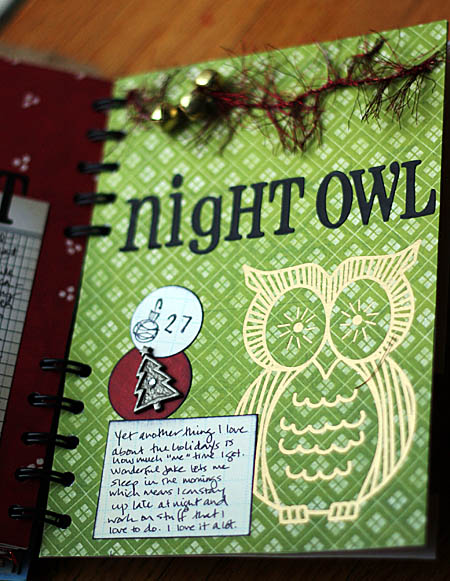 nigHT OWL
27
Yet another thing I love
about the holidays is
how much "me" time I get.
Wonderful Jake lets me
sleep in the mornings
which means I can stay
up late at night and
work on stuff that I
love to do. I love it a lot.